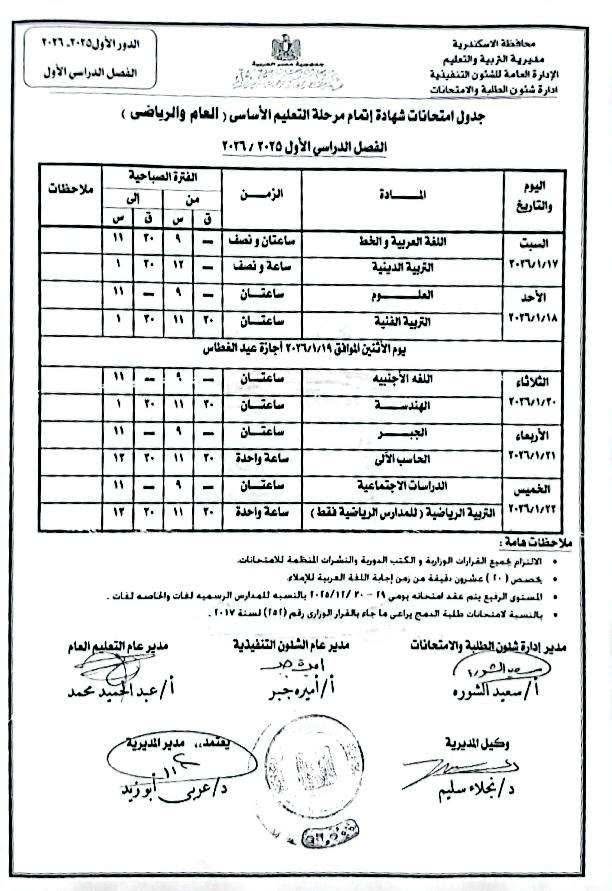 محافظة الاسكندرية
مديرية التربية والتعليم
الإدارة العامة للشئون التنفيذية
ادارة شئون الطلبة والامتحانات
جمهورية مصر العربية
الدور الأول ٢٠٢٥ـ ٢٠٢٦
الفصل الدراسي الأول
جدول امتحانات شهادة إتمام مرحلة التعليم الأساسى ( العام والرياضى )
الفصل الدراسي الأول ٢٠٢٥ / ٢٠٢٦
اليوم والتاريخ | المادة | الزمن | الفترة الصباحية | ملاحظات
من | إلى
ق | س | ق | س
السبت ٢٠٢٦/١/١٧ | اللغة العربية و الخط | ساعتان و نصف | — | ٩ | ٣٠ | ١١
التربية الدينية | ساعة و نصف | — | ١٢ | ٣٠ | ١
الأحد ٢٠٢٦/١/١٨ | العلـــوم | ساعتـــان | — | ٩ | — | ١١
التربية الفنية | ساعتـــان | ٣٠ | ١١ | ٣٠ | ١
يوم الأثنين الموافق ٢٠٢٦/١/١٩ أجازة عيد الغطاس
الثلاثاء ٢٠٢٦/١/٢٠ | اللغه الأجنبيه | ساعتـــان | — | ٩ | — | ١١
الهندســة | ساعتـــان | ٣٠ | ١١ | ٣٠ | ١
الأربعاء ٢٠٢٦/١/٢١ | الجبـــر | ساعتـــان | — | ٩ | — | ١١
الحاسب الآلى | ساعة واحدة | ٣٠ | ١١ | ٣٠ | ١٢
الخميس ٢٠٢٦/١/٢٢ | الدراسات الاجتماعية | ساعتـــان | — | ٩ | — | ١١
التربية الرياضية ( للمدارس الرياضية فقط ) | ساعة واحدة | ٣٠ | ١١ | ٣٠ | ١٢
ملاحظات هامة :
• الالتزام بجميع القرارات الوزارية و الكتب الدورية والنشرات المنظمة للامتحانات.
• يخصص ( ٢٠ ) عشرون دقيقة من زمن إجابة اللغة العربية للإملاء.
• المستوى الرفيع يتم عقد امتحانه يومى ٢٩ – ٢٠٢٥/١٢/٣٠ بالنسبه للمدارس الرسميه لغات والخاصه لغات .
• بالنسبة لامتحانات طلبة الدمج يراعى ما جاء بالقرار الوزارى رقم (٢٥٢) لسنة ٢٠١٧ .
مدير إدارة شئون الطلبة والامتحانات
أ/ سعيد الشوره
مدير عام الشئون التنفيذية
أ/ أميره جبر
مدير عام التعليم العام
أ/ عبد الحميد محمد
وكيل المديرية
د/ نجلاء سليم
يعتمد،، مدير المديرية
د/ عربى أبو زيد